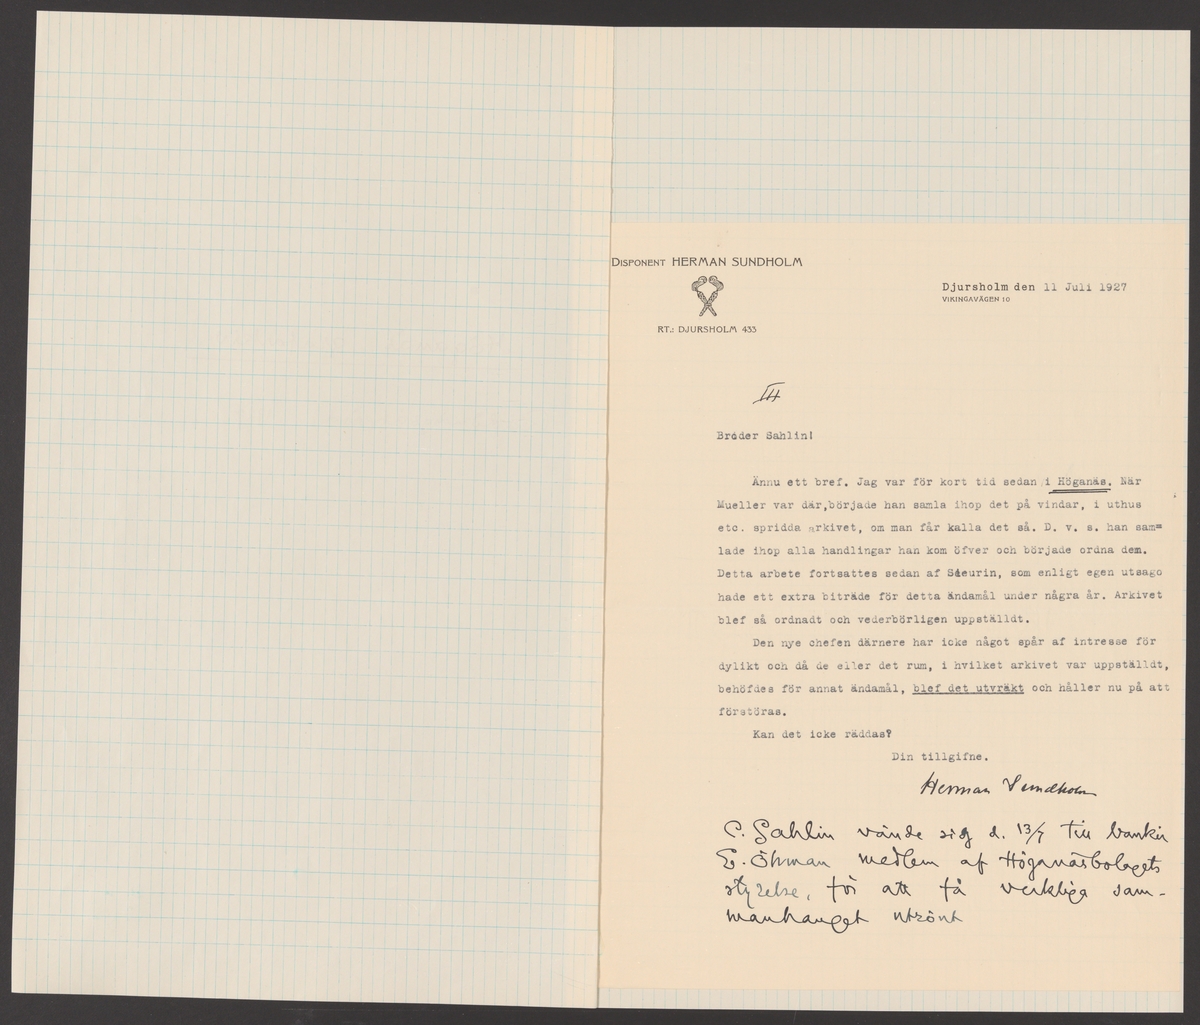 DISPONENT HERMAN SUNDHOLM
RT.: DJURSHOLM 433
Djursholm den 11 Juli 1927
VIKINGAVÄGEN 10
Broder Sahlin!
Ännu ett bref. Jag var för kort tid sedan i Höganäs. När
Mueller var där,började han samla ihop det på vindar, i uthus
etc. spridda arkivet, om man får kalla det så. D. v. s. han sam=
lade ihop alla handlingar han kom öfver och började ordna dem.
Detta arbete fortsattes sedan af Sieurin, som enligt egen utsago
hade ett extra biträde för detta ändamål under några år. Arkivet
blef så ordnadt och vederbörligen uppställdt.
Den nye chefen därnere har icke något spår af intresse för
dylikt och då de eller det rum, i hvilket arkivet var uppställdt,
behöfdes för annat ändamål, blef det utvräkt och håller nu på att
förstöras.
Kan det icke räddas?
Din tillgifne.
Herman Sundholm
C. Sahlin vände sig d. 13/7 till bankir
E. Öhman medlem af Höganäsbolagets
styrelse, för att få verkliga sam-
manhanget utrönt